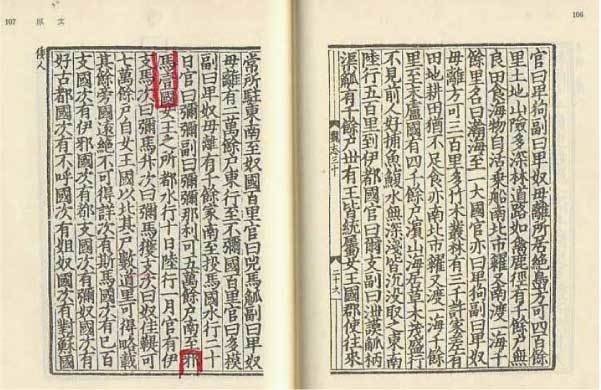 106
官曰卑狗副曰卑奴母離所居絶島方可四百餘
里土地山險多深林道路如禽鹿徑有千餘戶無
良田食海物自活乗船南北市糴又南渡一海千
餘里名曰瀚海至一大國官亦曰卑狗副曰卑奴
母離方可三百里多竹木叢林有三千許家差有
田地耕田猶不足食亦南北市糴又渡一海千餘
里至末盧國有四千餘戶濵山海居草木茂盛行
不見前人好捕魚鰒水無深淺皆沈沒取之東南
陸行五百里到伊都國官曰爾支副曰泄謨觚柄
渠觚有千餘戶丗有王皆統屬女王國郡使往來
107
原文
常所駐東南至奴國百里官曰兕馬觚副曰卑奴
母離有二萬餘戶東行至不彌國百里官曰多模
副曰卑奴母離有千餘家南至投馬國水行二十
日官曰彌彌副曰彌彌那利可五萬餘戶南至邪
馬壹國女王之所都水行十日陸行一月官有伊
支馬次曰彌馬升次曰彌馬獲支次曰奴佳鞮可
七萬餘戶自女王國以北其戶數道里可得略載
其餘旁國遠絶不可得詳次有斯馬國次有已百
支國次有伊邪國次有都支國次有彌奴國次有
好古都國次有不呼國次有姐奴國次有對蘇國
倭人